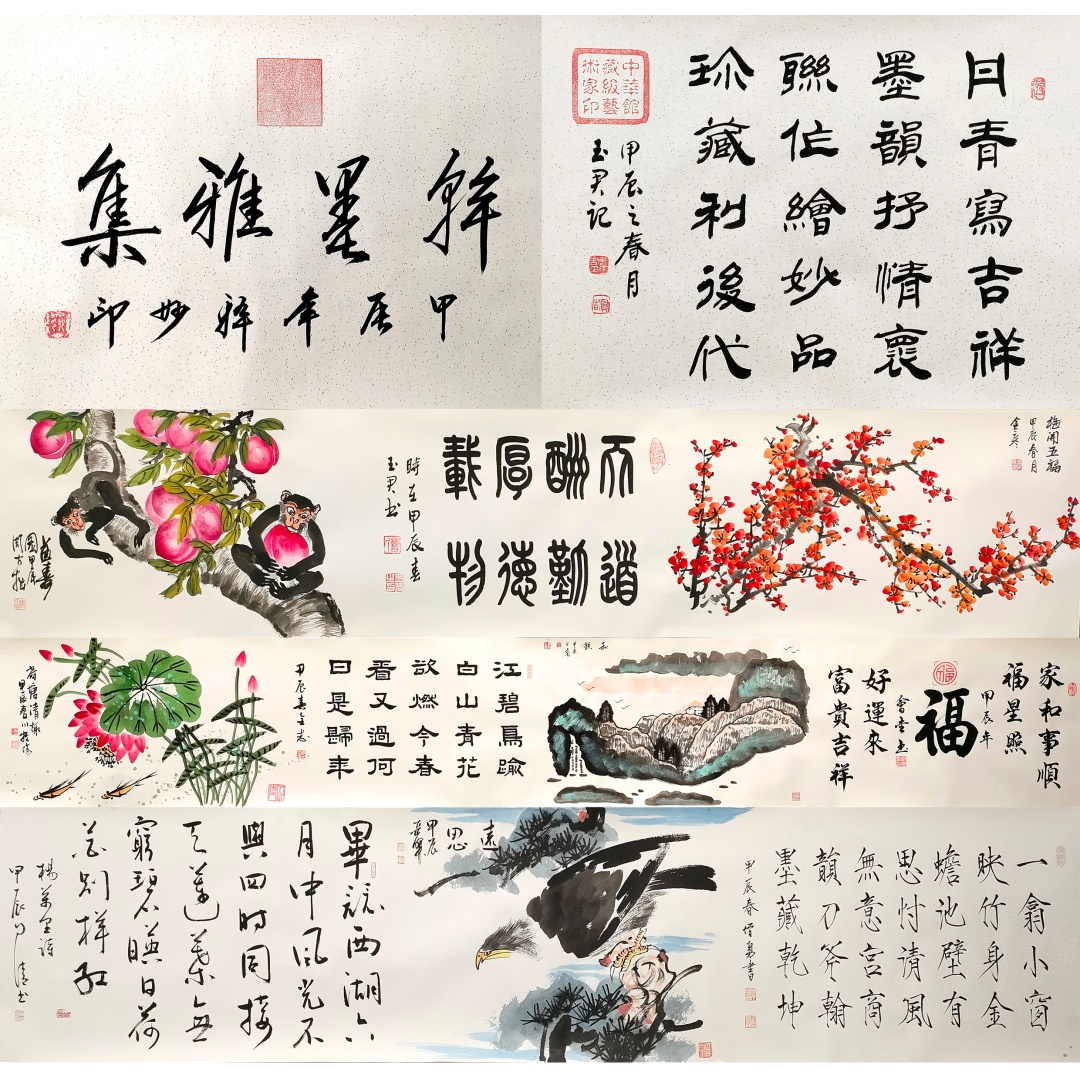 翰墨雅集
甲辰年释妙印
丹青寫吉祥
墨韻抒情衷
聯作繪妙品
珍藏利後代
甲辰之春月
玉君記
中華館
藏級藝
術家印
益壽
圖甲辰
天道
酬勤
厚德
載物
時在甲辰春
玉君书
梅開五福
甲辰春月
荷塘清趣
甲辰春
江碧鳥踰
白山青花
欲燃今春
看又過何
日是歸年
甲辰春
家和事順
福星照
甲辰年
福
好運來
富貴吉祥
畢竟西湖六
月中風光不
與四時同接
天蓮葉無
窮碧映日荷
花別樣紅
楊萬里詩
甲辰
遠思
甲辰
一翕小窗
映竹身金
蟾池壁有
思忖清風
無意宫商
韻刀斧翰
墨藏乾坤
甲辰春